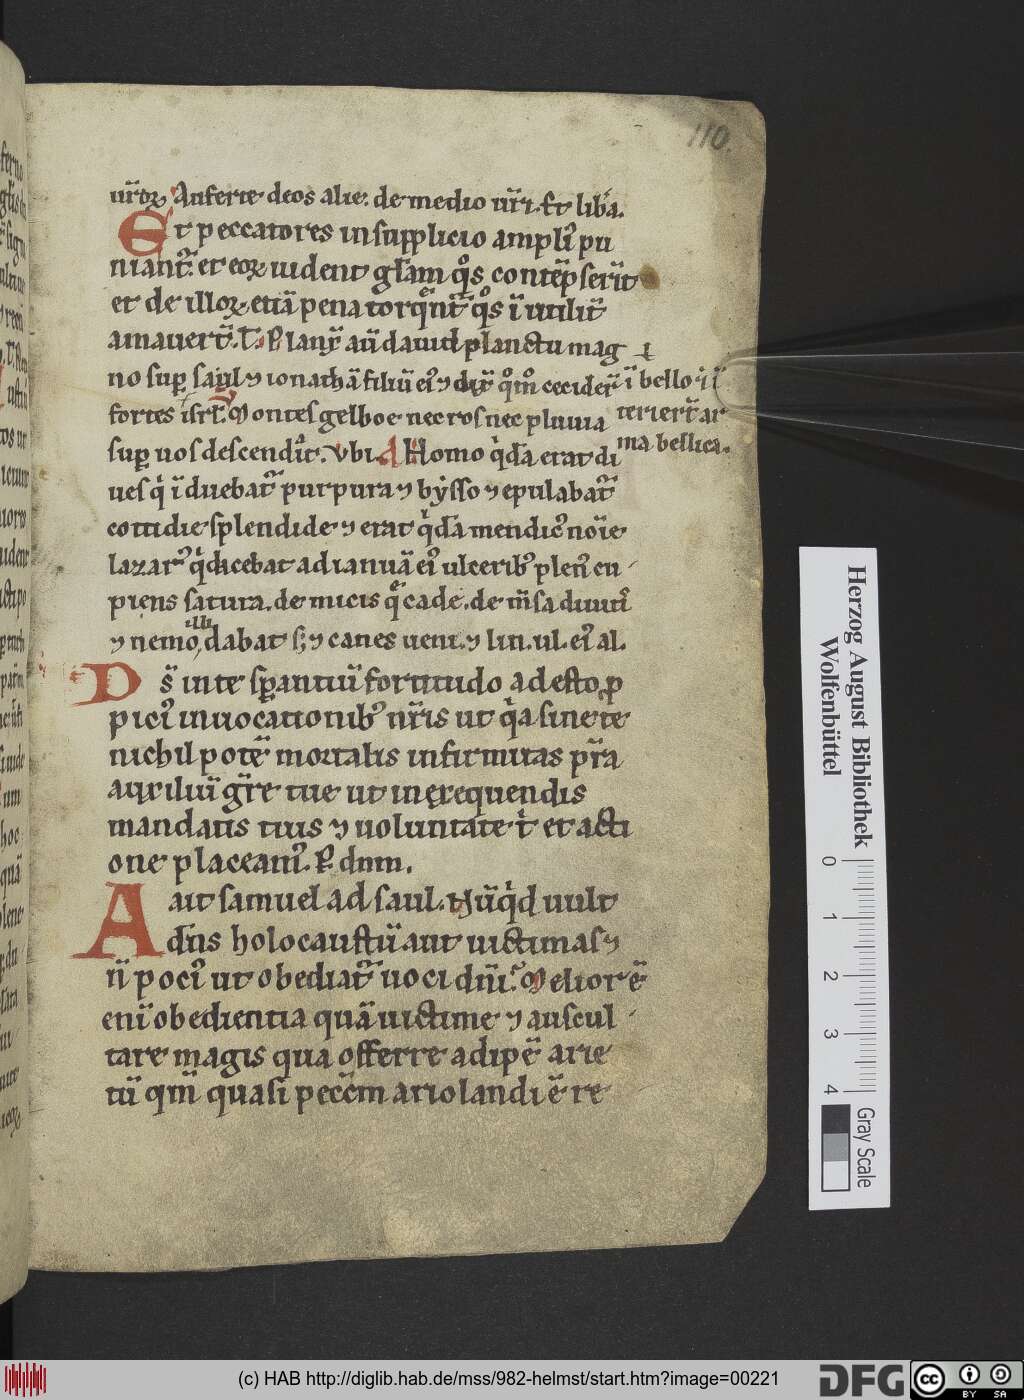 110.
ur̄oꝝ Auferte deos alie. de medio ur̄i. Et liba.
Et peccatores in supplicio ampli' pu
niant᷑. et eoꝝ uident gl̄am q̊s contēpserūt
et de illoꝝ etiā pena torq̄nt᷑ q̊s īutilit᷑
amauer̄t. Planx̄ aū dauid planctu mag
no sup̱ saul ⁊ ionathā filiū ei' ⁊ dix̄ q̄m̊ cecider̄ ī bello
fortes isrl̄. Montes gelboe nec ros nec pluuia
terier̄t ar
ma bellica.
sup̱ uos descendīt. Vbi. Homo q'dā erat di
ues q' īduebat᷑ purpura ⁊ bysso ⁊ epulabat᷑
cottidie splendide ⁊ erat q'dā mendic' noīe
lazar' q' iacebat ad ianuā ei' ulcerib' plen' cu
piens satura. de micis q̄ cade. de m̄sa diuiti'
⁊ nemo illi dabat s; ⁊ canes ueni. ⁊ lin. ul. ei' al.
Ds̄ in te sp̱antiū fortitudo adesto p̱
pici' inuocationib' nr̄is ut q'a sine te
nichil potē mortalis infirmitas pr̄a
auxiliū gr̄e tue ut in exequendis
mandatis tuis ⁊ uoluntate t' et acti
one placeam'. P. dnm.
Ait samuel ad saul. Nūq'd uult
dn̄s holocaustū aut uictimas ⁊
n̄ poci' ut obediat᷑ uoci dn̄i. Melior ē
enī obedientia quā uictime ⁊ auscul
tare magis qua offerre adipē arie
tū qm̄ quasi peccm̄ ariolandi ē re
Herzog August Bibliothek
Wolfenbüttel
0 1 2 3 4
Gray Scale
(c) HAB http://diglib.hab.de/mss/982-helmst/start.htm?image=00221
DFG
cc
BY SA